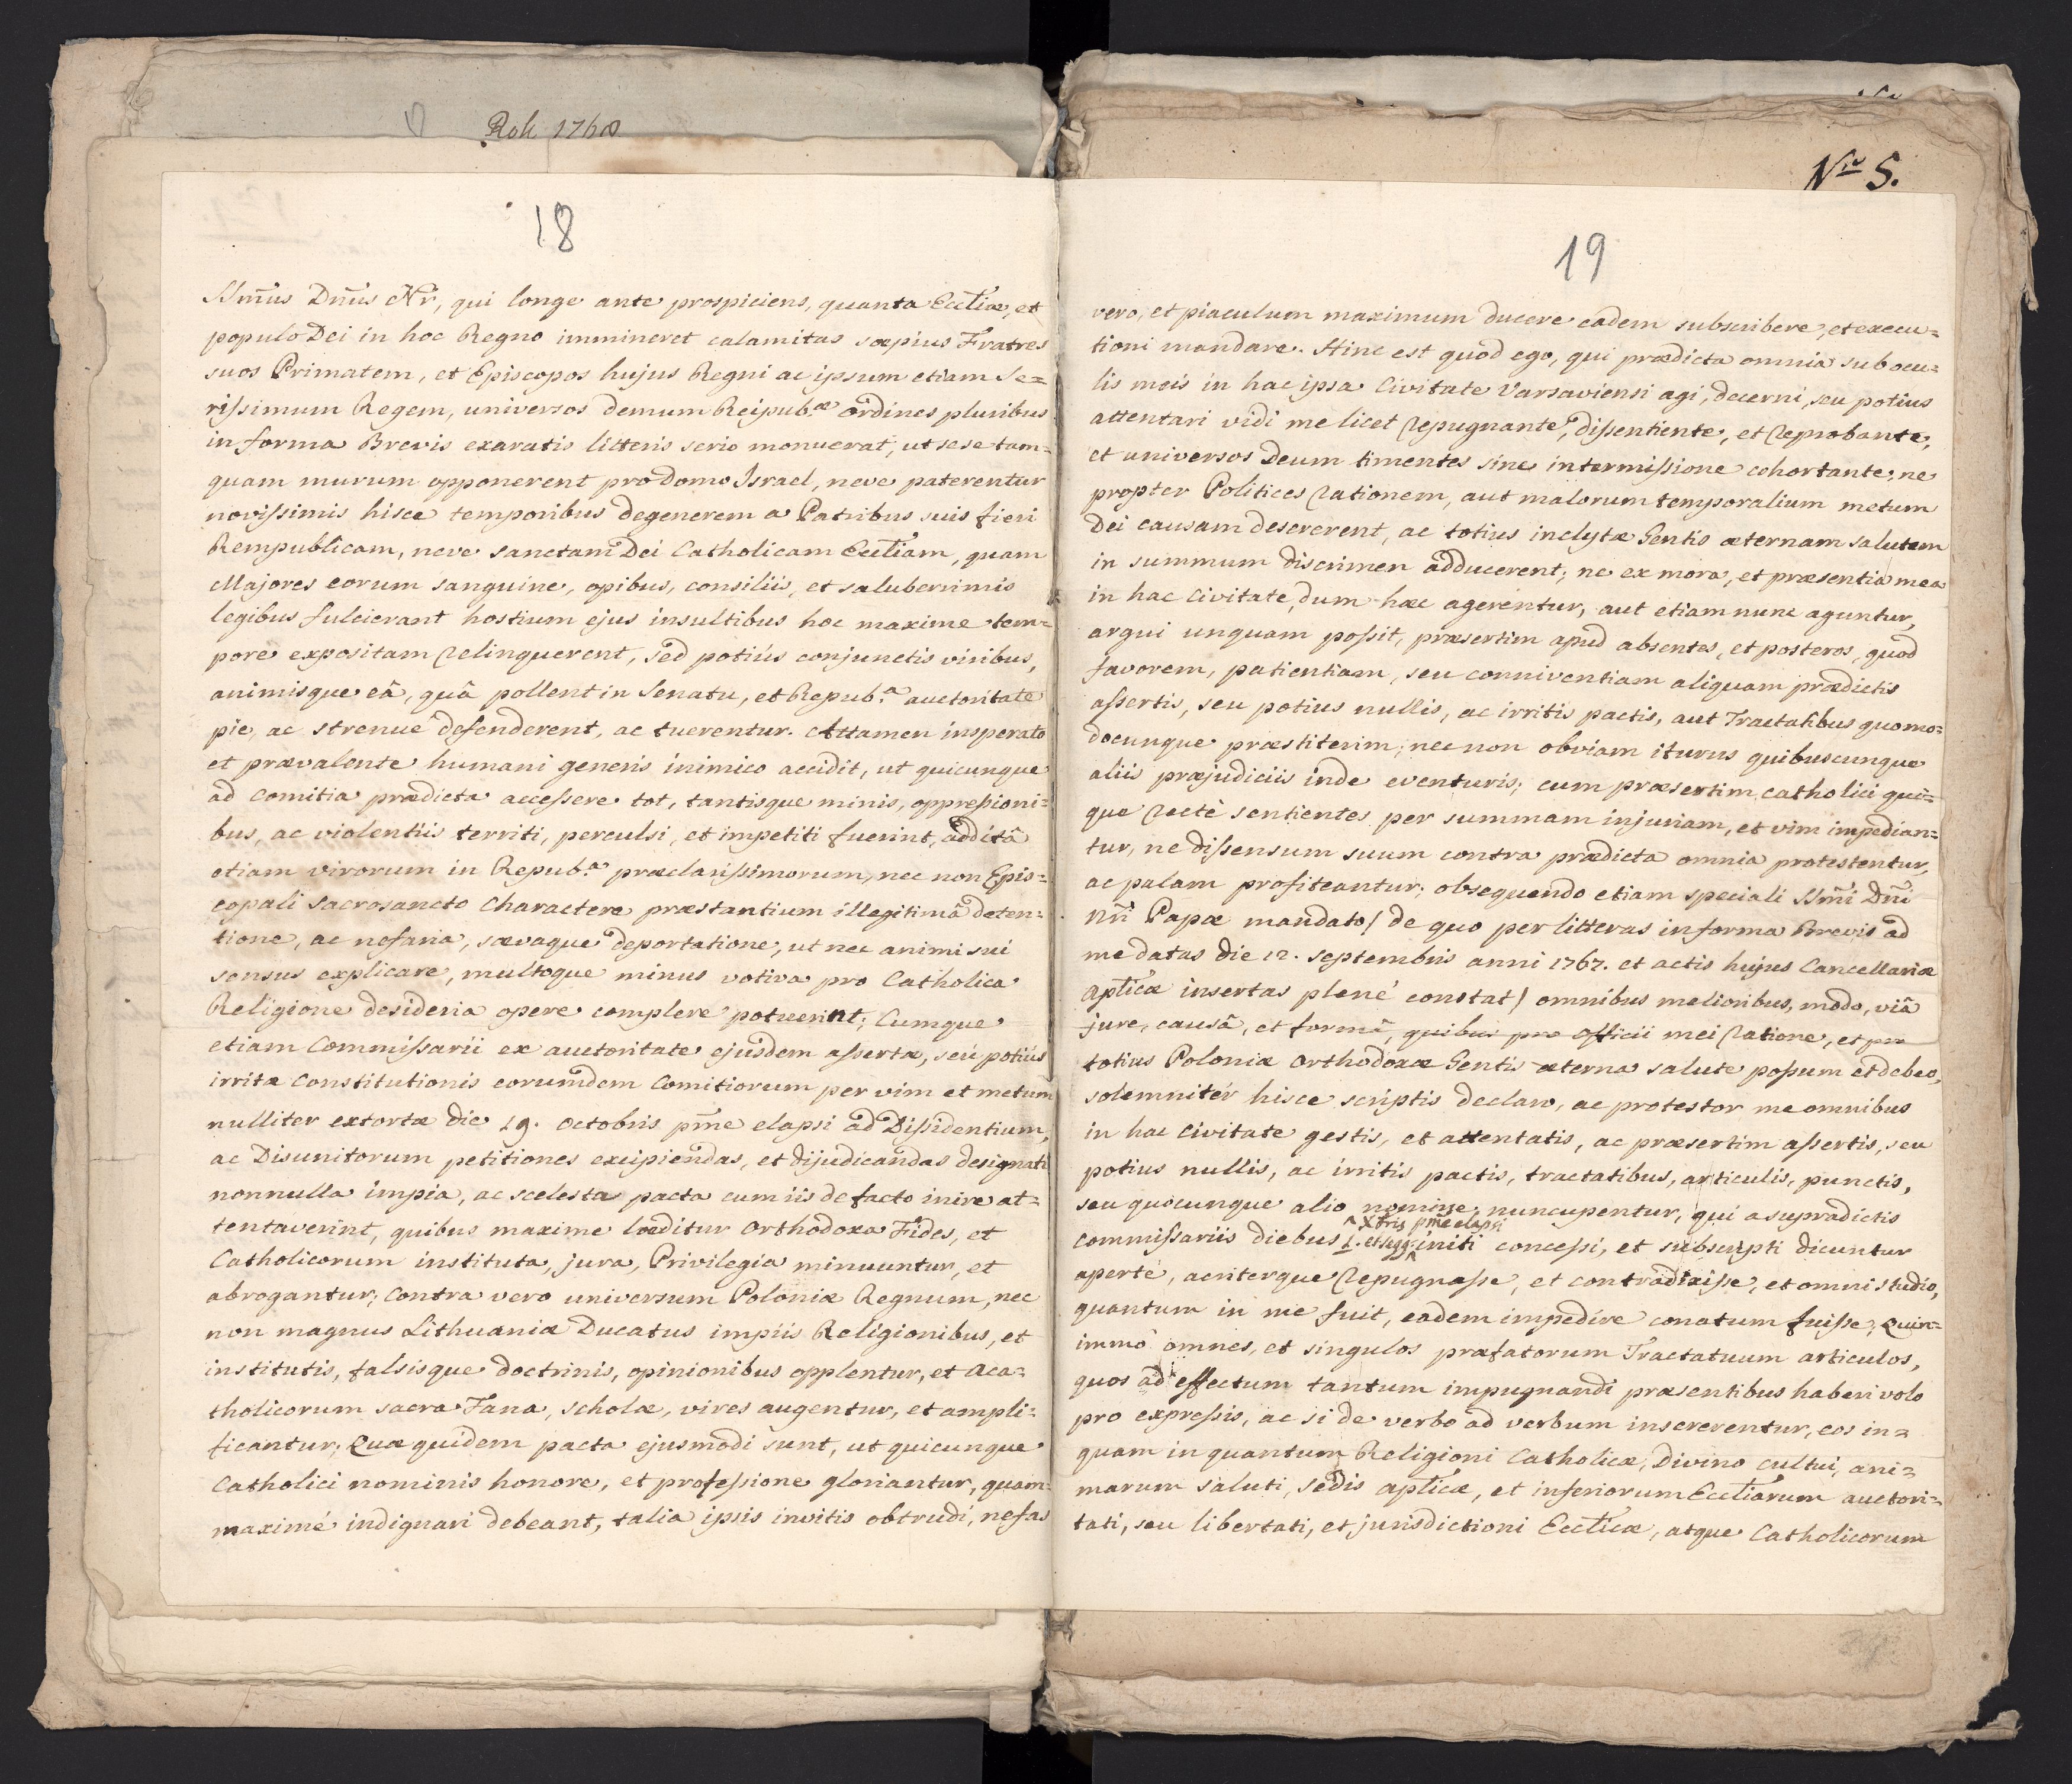 Rok 1768
18
SSm̃us Dñus Nr̃, qui longe ante prospiciens, quanta Eccliæ, et
populo Dei in hoc Regno immineret calamitas sæpius Fratres
suos Primatem, et Episcopos hujus Regni ac ipsum etiam Se=
rissimum Regem, universos demum Reipub.æ ordines pluribus
in forma Brevis exaratis litteris serio monuerat, ut sese tam=
quam murum opponerent pro domo Israel, neve paterentur
novissimis hisce temporibus degenerem a Patribus suis fieri
Rempublicam, neve sanctam Dei Catholicam Eccliam, quam
Majores eorum sanguine, opibus, consiliis, et saluberrimis
legibus fulcierant hostium ejus insultibus hoc maxime tem=
pore expositam relinquerent, sed potiús conjunctis viribus,
animisque eâ, quâ pollent in Senatu, et Repub.a auctoritate
pie, ac strenue defenderent, ac tuerentur. Attamen insperato
et prævalente humani generis inimico accidit, ut quicunque
ad Comitia prædicta accessere tot, tantisque minis, oppressioni=
bus, ac violentiis territi, perculsi, et impetiti fuerint, additâ
etiam virorum in Repub.a præclarissimorum, nec non Epis=
copali sacrosancto Charactere præstantium illegitimâ deten=
tione, ac nefaria, sævaque deportatione, ut nec animi sui
sensus explicare, multoque minus votiva pro Catholica
Religione desideria opere complere potuerint; Cumque
etiam Commissarii ex auctoritate ejusdem assertæ, seu potiús
irritæ Constitutionis eorumdem Comitiorum per vim et metum
nulliter extortæ die 19. Octobris pm̃e elapsi ad Dissidentium,
ac Disunitorum petitiones excipiendas, et dijudicandas designati
nonnulla impia, ac scelesta pacta cum iis de facto inire at=
tentaverint, quibus maxime læditur Orthodoxa Fides, et
Catholicorum instituta, jura, Privilegia minuuntur, et
abrogantur; Contra vero universum Poloniæ Regnum, nec
non magnus Lithuaniæ Ducatus impiis Religionibus, et
institutis, falsisque doctrinis, opinionibus opplentur, et Aca=
tholicorum sacra Fana, scholæ, vires augentur, et ampli=
ficantur; Quæ quidem pacta ejusmodi sunt, ut quicunque
Catholici nominis honore, et professione gloriantur, quam=
maximé indignari debeant, talia ipsis invitis obtrudi, nefas
Nro 5.
19
vero, et piaculum maximum ducere eadem subscribere, et execu=
tioni mandare. Hinc est quod ego, qui prædicta omnia sub ocu=
lis meis in hac ipsa Civitate Varsaviensi agi, decerni, seu potius
attentari vidi me licet repugnante, dissentiente, et reprobante,
et universos Deum timentes sine intermissione cohortante, ne
propter Politices rationem, aut malorum temporalium metum
Dei causam desererent, ac totius inclytæ Gentis æternam salutem
in summum discrimen adducerent; ne ex mora, et præsentia mea
in hac Civitate, dum hæc agerentur, aut etiam nunc aguntur,
argui unquam possit, præsertim apud absentes, et posteros, quod
favorem, patientiam, seu conniventiam aliquam prædictis
assertis, seu potius nullis, ac irritis pactis, aut Tractatibus quomo=
docunque præstiterim; nec non obviam iturus quibuscunque
aliis præjudiciis inde eventuris; cum præsertim catholici qui=
que recté sentientes per summam injuriam, et vim impedian=
tur, ne dissensum suum contra prædicta omnia protestentur,
ac palam profiteantur; obsequendo etiam speciali SSm̃i Dñi
Nr̃i Papæ mandato/ de quo per litteras in forma Brevis ad
me datas die 12. Septembris anni 1767. et actis hujus Cancellariæ
Aplicæ insertas plené constat/ omnibus melioribus, modo, viâ
jure, causâ, et formâ, quibus pro Officii mei ratione, et pro
totius Poloniæ Orthodoxæ Gentis æterna salute possum et debeo,
solemnitér hisce scriptis declaro, ac protestor me omnibus
in hac Civitate gestis, et attentatis, ac præsertim assertis, seu
potius nullis, ac irritis pactis, tractatibus, articulis, punctis,
seu quocunque alio nomine nuncupentur, qui a supradictis
^ Xbris pm̃e elapsi
Commissariis diebus 1. et seqq: initi concessi, et subscripti dicuntur
aperté, acriterque repugnasse, et contradixisse, et omni studio,
quantum in me fuit, eadem impedire conatum fuisse; Quin=
immo omnes, et singulos præfatorum Tractatuum articulos,
quos ad effectum tantum impugnandi præsentibus haberi volo
pro expressis, ac si de verbo ad verbum insererentur, eos in=
quam in quantum Religioni Catholicæ, Divino cultui, ani=
marum saluti, Sedis Aplicæ, et inferiorum Eccliarum auctori=
tati, seu libertati, et jurisdictioni Ecclicæ, atque Catholicorum